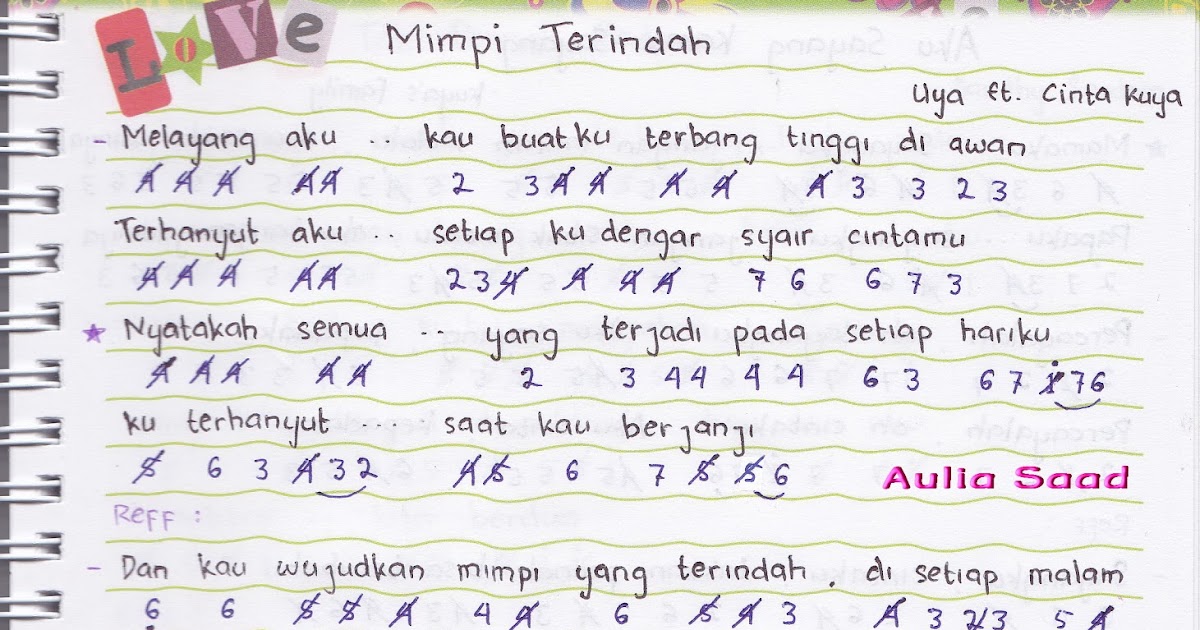 LOVE
Mimpi Terindah
Uya ft. Cinta Kuya
- Melayang aku .. kau buatku terbang tinggi di awan
4̸ 4̸ 4̸ 4̸ 4̸ 2 3 4̸ 4̸ 4̸ 4̸ 4̸ 3 3 2 3
Terhanyut aku .. setiap ku dengar syair cintamu
4̸ 4̸ 4̸ 4̸ 4̸ 2 3 4̸ 4̸ 4̸ 4̸ 7 6 6 7 3
★ Nyatakah semua .. yang terjadi pada setiap hariku
4̸ 4̸ 4̸ 4̸ 4̸ 2 3 4 4 4 4 6 3 6 7 1̸̇ 7 6
ku terhanyut .... saat kau berjanji
5̸ 6 3 4̸ 3 2 4̸ 5̸ 6 7 5̸ 5̸ 6
Aulia Saad
Reff :
- Dan kau wujudkan mimpi yang terindah, di setiap malam
6 6 5̸ 5̸ 4̸ 4 4̸ 6 5̸ 4̸ 3 4̸ 3 3 5 4̸